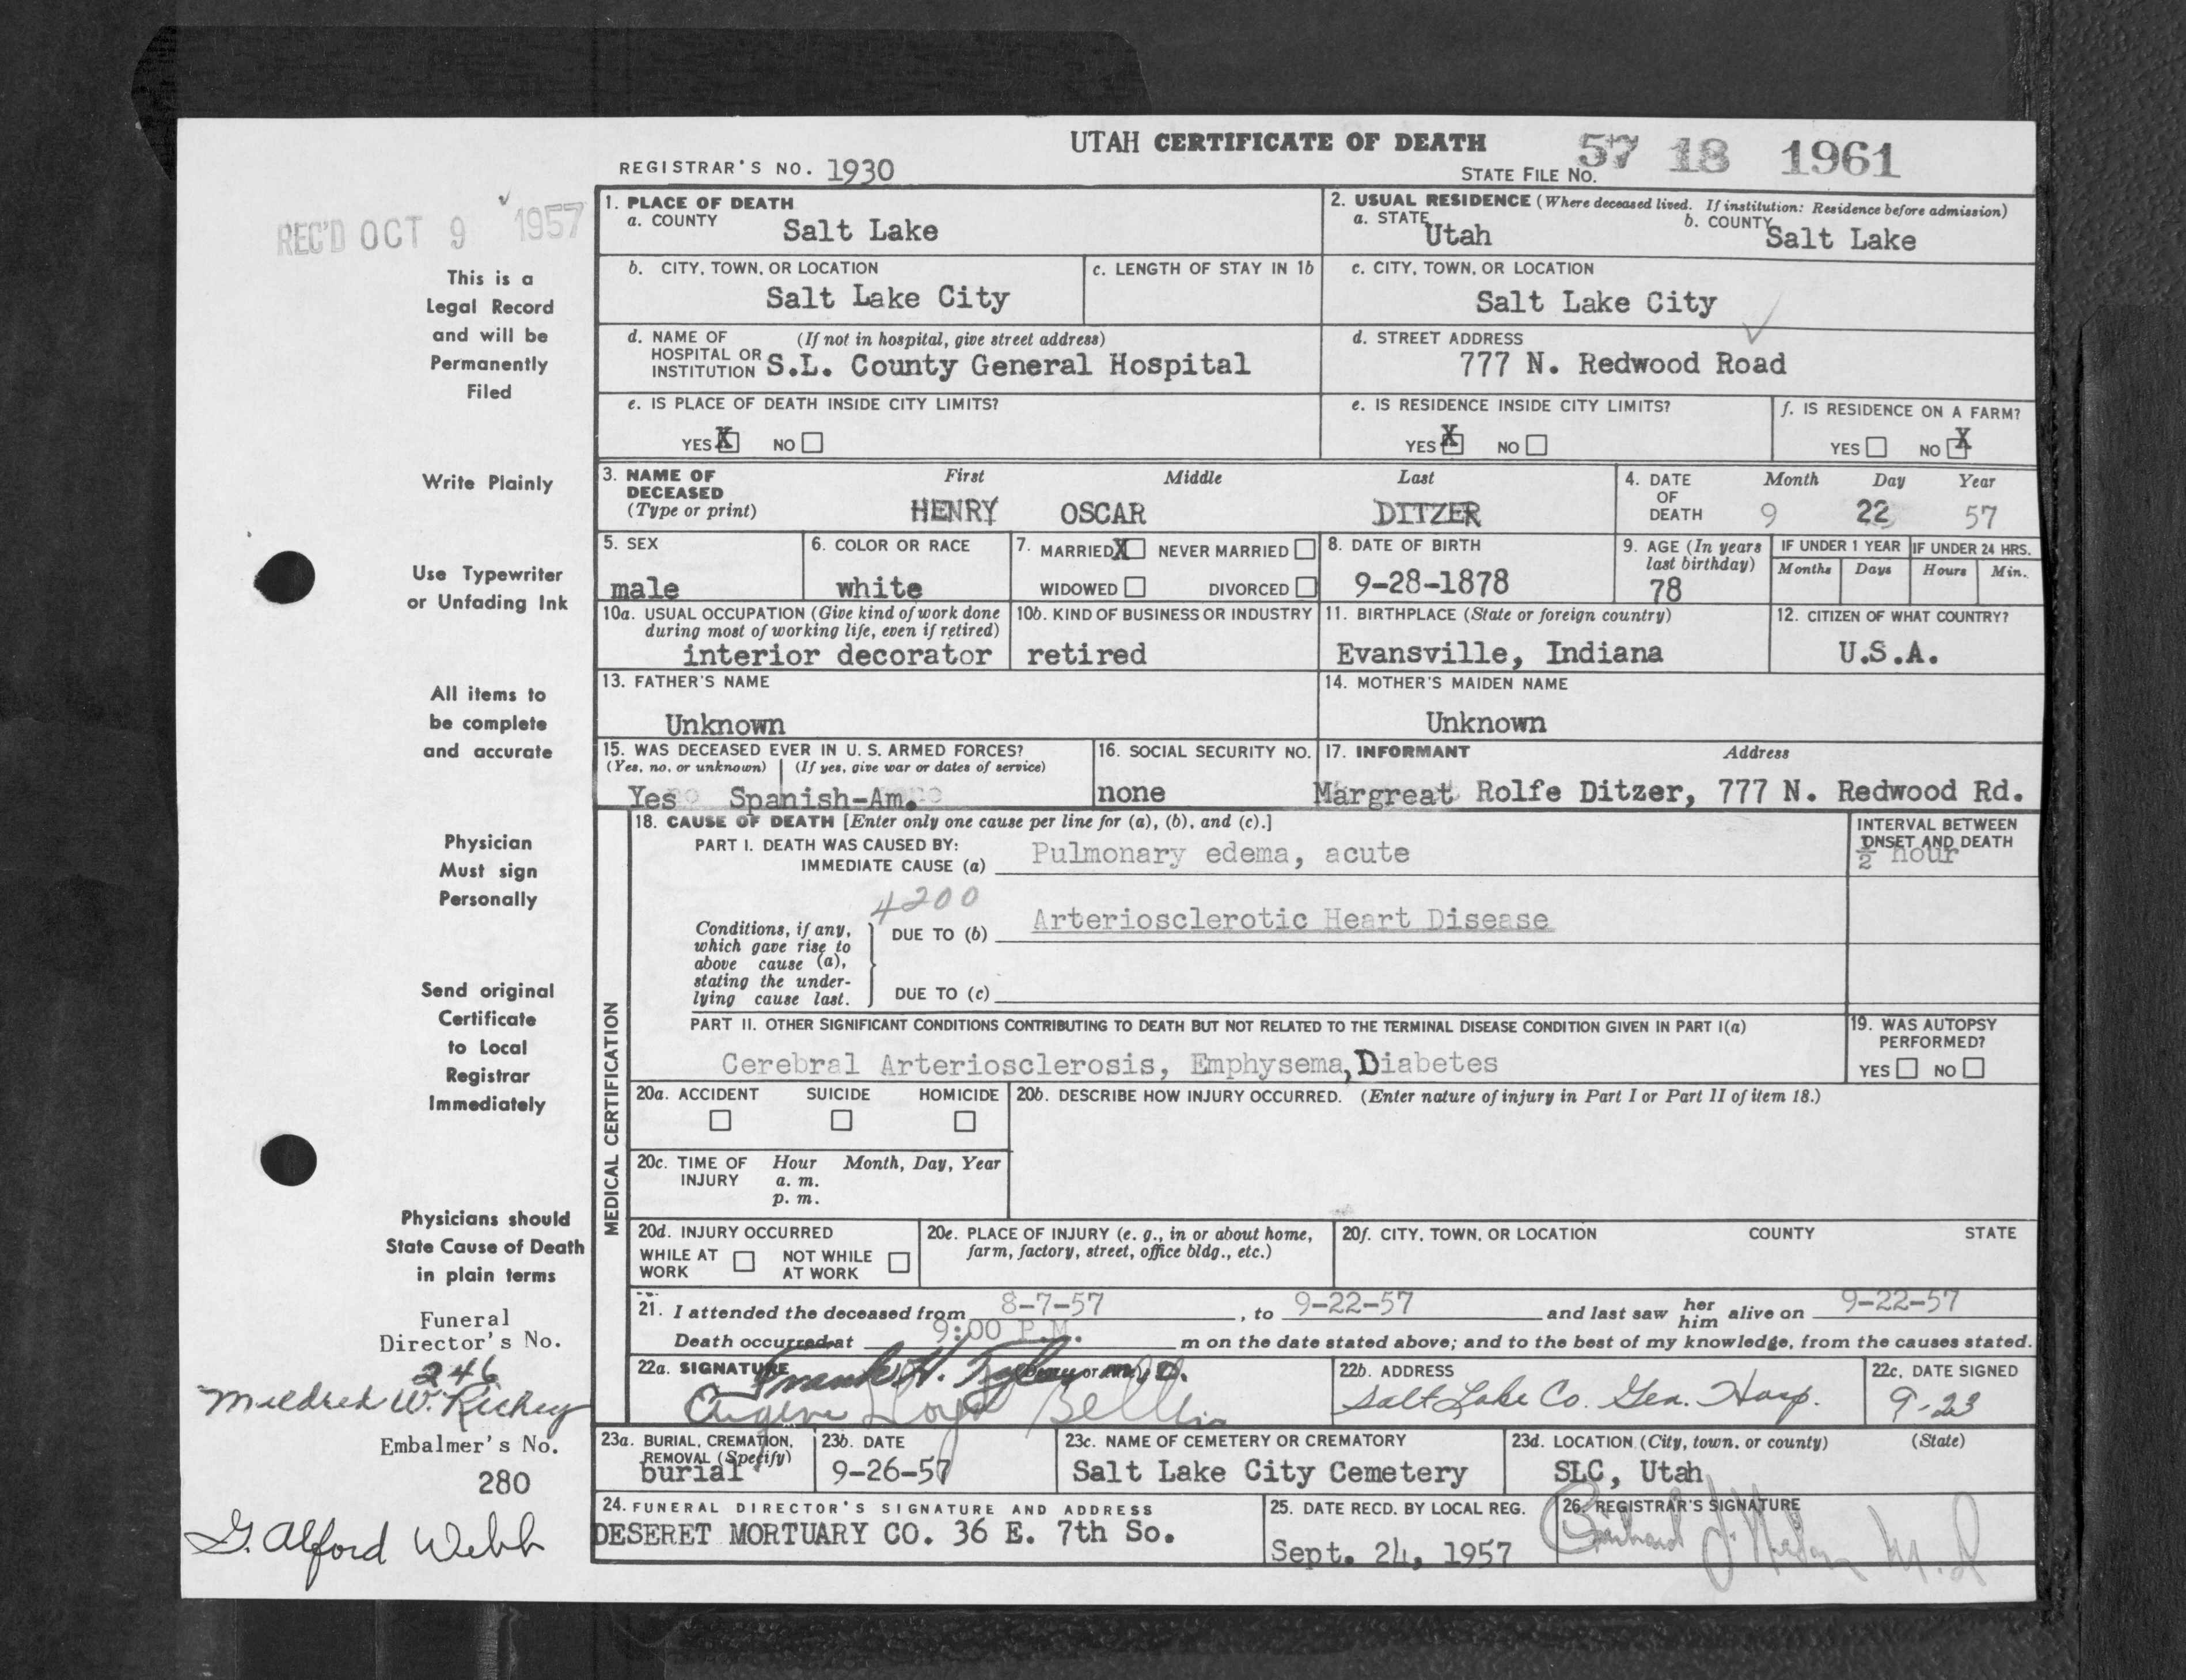 UTAH CERTIFICATE OF DEATH
REGISTRAR'S NO. 1930
STATE FILE NO. 57 18 1961
REC'D OCT 9 1957
This is a
Legal Record
and will be
Permanently
Filed
Write Plainly
Use Typewriter
or Unfading Ink
All items to
be complete
and accurate
Physician
Must sign
Personally
Send original
Certificate
to Local
Registrar
Immediately
Physicians should
State Cause of Death
in plain terms
Funeral
Director's No.
246
Mildred W. Richey
Embalmer's No.
280
G. Alford Webb
1. PLACE OF DEATH
a. COUNTY Salt Lake
2. USUAL RESIDENCE (Where deceased lived. If institution: Residence before admission)
a. STATE Utah b. COUNTY Salt Lake
b. CITY, TOWN, OR LOCATION
Salt Lake City
c. LENGTH OF STAY IN 1b
c. CITY, TOWN, OR LOCATION
Salt Lake City
d. NAME OF (If not in hospital, give street address)
HOSPITAL OR
INSTITUTION S.L. County General Hospital
d. STREET ADDRESS
777 N. Redwood Road
e. IS PLACE OF DEATH INSIDE CITY LIMITS?
YES X NO
e. IS RESIDENCE INSIDE CITY LIMITS?
YES X NO
f. IS RESIDENCE ON A FARM?
YES NO X
3. NAME OF First Middle Last
DECEASED
(Type or print) HENRY OSCAR DITZER
4. DATE Month Day Year
OF
DEATH 9 22 57
5. SEX
male
6. COLOR OR RACE
white
7. MARRIED X NEVER MARRIED
WIDOWED DIVORCED
8. DATE OF BIRTH
9-28-1878
9. AGE (In years
last birthday)
78
IF UNDER 1 YEAR
Months Days
IF UNDER 24 HRS.
Hours Min.
10a. USUAL OCCUPATION (Give kind of work done
during most of working life, even if retired)
interior decorator
10b. KIND OF BUSINESS OR INDUSTRY
retired
11. BIRTHPLACE (State or foreign country)
Evansville, Indiana
12. CITIZEN OF WHAT COUNTRY?
U.S.A.
13. FATHER'S NAME
Unknown
14. MOTHER'S MAIDEN NAME
Unknown
15. WAS DECEASED EVER IN U. S. ARMED FORCES?
(Yes, no, or unknown) (If yes, give war or dates of service)
Yes Spanish-Am.
16. SOCIAL SECURITY NO.
none
17. INFORMANT Address
Margreat Rolfe Ditzer, 777 N. Redwood Rd.
MEDICAL CERTIFICATION
18. CAUSE OF DEATH [Enter only one cause per line for (a), (b), and (c).]
PART I. DEATH WAS CAUSED BY:
IMMEDIATE CAUSE (a) Pulmonary edema, acute
INTERVAL BETWEEN
ONSET AND DEATH
½ hour
4200
Conditions, if any,
which gave rise to
above cause (a),
stating the under-
lying cause last.
DUE TO (b) Arteriosclerotic Heart Disease
DUE TO (c)
PART II. OTHER SIGNIFICANT CONDITIONS CONTRIBUTING TO DEATH BUT NOT RELATED TO THE TERMINAL DISEASE CONDITION GIVEN IN PART I(a)
Cerebral Arteriosclerosis, Emphysema, Diabetes
19. WAS AUTOPSY
PERFORMED?
YES NO
20a. ACCIDENT SUICIDE HOMICIDE
20b. DESCRIBE HOW INJURY OCCURRED. (Enter nature of injury in Part I or Part II of item 18.)
20c. TIME OF Hour Month, Day, Year
INJURY a. m.
p. m.
20d. INJURY OCCURRED
WHILE AT NOT WHILE
WORK AT WORK
20e. PLACE OF INJURY (e. g., in or about home,
farm, factory, street, office bldg., etc.)
20f. CITY, TOWN, OR LOCATION COUNTY STATE
21. I attended the deceased from 8-7-57, to 9-22-57 and last saw her him alive on 9-22-57
Death occurred at 9:00 P.M. m on the date stated above; and to the best of my knowledge, from the causes stated.
22a. SIGNATURE Frank H.
Eugene Lloyd
22b. ADDRESS
Salt Lake Co. Gen. Hosp.
22c. DATE SIGNED
9-23
23a. BURIAL, CREMATION,
REMOVAL (Specify)
burial
23b. DATE
9-26-57
23c. NAME OF CEMETERY OR CREMATORY
Salt Lake City Cemetery
23d. LOCATION (City, town, or county) (State)
SLC, Utah
24. FUNERAL DIRECTOR'S SIGNATURE AND ADDRESS
DESERET MORTUARY CO. 36 E. 7th So.
25. DATE RECD. BY LOCAL REG.
Sept. 24, 1957
26. REGISTRAR'S SIGNATURE
M.D